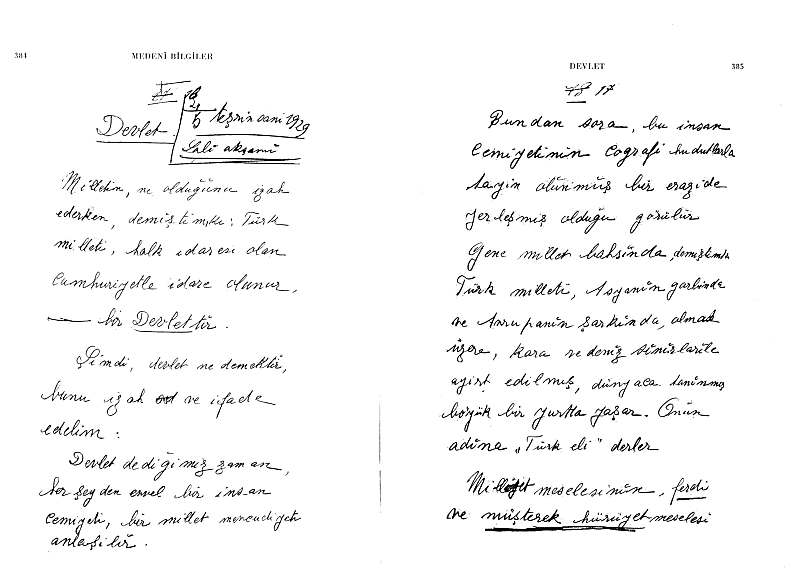 384
MEDENÎ BİLGİLER
18
Devlet
5 teşrin sani 1929
Salı akşamı
Milletin, ne olduğunu izah
ederken, demiştimki: Türk
milleti, halk idaresi olan
Cumhuriyetle idare olunur,
— bir Devlettir.
Şimdi, devlet ne demektir,
bunu izah ve ifade
edelim:
Devlet dediğimiz zaman,
her şeyden evvel bir insan
cemiyeti, bir millet mevcudiyeti
anlaşılır.
DEVLET
385
18 17
Bundan sora, bu insan
cemiyetinin coğrafi hudutlarla
tayin olunmuş bir erazide
yerleşmiş olduğu görülür
Gene millet bahsında, demiştimki
Türk milleti, Asyanın garbinde
ve Avrupanın şarkında, olmak
üzere, kara ve deniz sınırlarile
ayırt edilmiş, dünyaca tanınmış
böyük bir yurtta yaşar. Onun
adına „Türk eli" derler
Milliyet meselesinin, ferdi
ve müşterek hürriyet meselesi